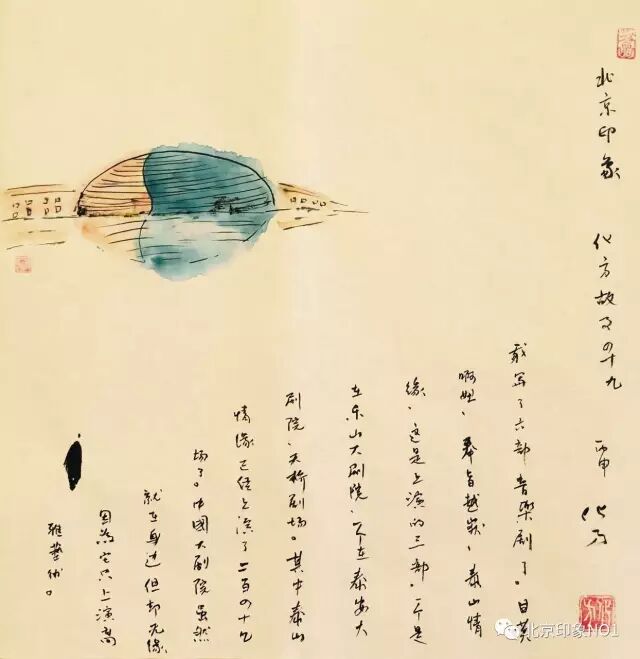 北京印象 化方故事四十九 丙申 化方
我写了六部音樂剧了。
奉旨越狱、泰山情
缘、这是上演的三部、一个是
在乐山大剧院、一个在泰安大
剧院、天桥剧场。其中泰山
情缘已经上演了二百四十
场了。中國大剧院虽然
就在身边但却无缘
因為它只上演高
雅藝術。
北京印象NO1